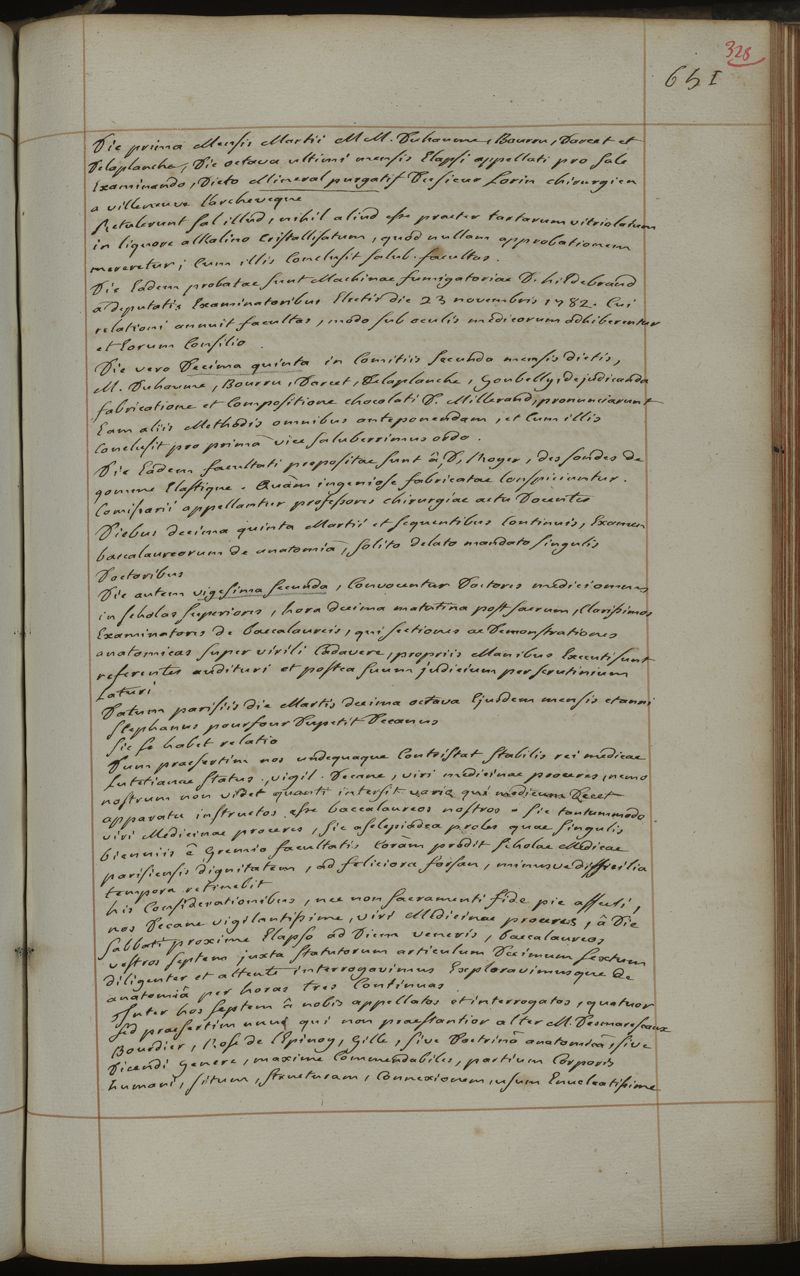 328
651
Die prima Mensis Martii M M. Duhaume, Bourru, Darcet et
Delaplanche, Die octava ultimi mensis Elapsi appellati pro Sale
Examinando, Dicto Mineral purgatif Du sieur Lorin chirurgien
a villeneuve l'archeveque
Retulerunt sal illud, nihil aliud esse praeter tartarum vitriolatum
in liquore alkalino Cristallisatum, quod nullam approbationem
mereretur; Cum illis Conclusit salub. facultas.
Die Eadem probatae sunt Machinae fumigatoriae D. hildebrand
a deputatis Examinatoribus Electis die 23 novembris 1782. Cui
relationi annuit facultas, modo sub oculis medicorum adhiberentur
et Eorum Consilio.
Die vero Decima quinta in Comitiis secunda mensis dictis,
M. Duhaume, Bourru, Darcet, Delaplanche, Goubelly, de judicanda
fabricatione et Compositione chocolati D. Millerand, pronunciarunt
Eam aliis Methodis omnibus anteponendam, et Cum illis
Conclusit pro primâ vice saluberrimus ordo.
Die Eadem facultati propositae sunt â D, lhoyer, des sondes de
gomme Elastique. Quam ingeniose fabricatae Conspiciuntur.
Comissarii appellantur professores chirurgiae actu Docentes
Diebus decima quinta Martii et sequentibus Continuis, Examen
baccalaureorum de anatomiâ, solito delato mandato singulis
Doctoribus
Die autem vigesima secunda, Convocentur Doctores medici omnes
in scholas superiores, hora decima matutina post sacrum, Clarissimos
Examinatores de baccalaureis, qui sectiones ac Demonstrationes
anatomicas super virili Cadavere, propriis Manibus Executi sunt
referentes audituri et postea suum judicium per scrutinium
Laturi
Datum parisiis die Martis decima octava Ejusdem mensis et anni
Stephanus pourfour Dupetit Decanus
Sic se habet relatio
Dum praesertim nos undequaque Contristat stabilis rei medicae
Lutetianae status, vigil. Decane, viri medicinae proceres, nemo
nostrum non videt quanti intersit variâ quâ medicum Decet
apparatu instructos esse baccalaureos nostros. Sic tantummodo
viri Medicinae proceres, sic asclepiadea proles quae singulis
bienniis ê Gremio facultatis Coràm prodit scholae Medicae
parisiensis dignitatem, ad feliciora forsan, minusve difficilia
tempora retinebit
his Considerationibus, nec non sacramenti fide pie assueti,
nos Decane vigilantissime, viri Medicinae proceres, â Die
Sabbati proxime Elapso ad Diem veneris, baccalaureos
vestros septem juxta statutorum articulum Decimum sextum
diligenter et attente interrogavimus Exploravimusque de
anatomiâ per horas tres Continuas
Inter hos septem â nobis appellatos et interrogatos, quatuor
sed praesertim unus qui non praestantior alter M. Desmaresceaux
Bourdier, l'ose de l'Epinoy, Gille, sive Doctrinâ anatomicâ, sive
Dicendi genere, maxime Commendabiles, partium Corporis
humani, situm, structuram, Connexionem, usum Enucleatissime